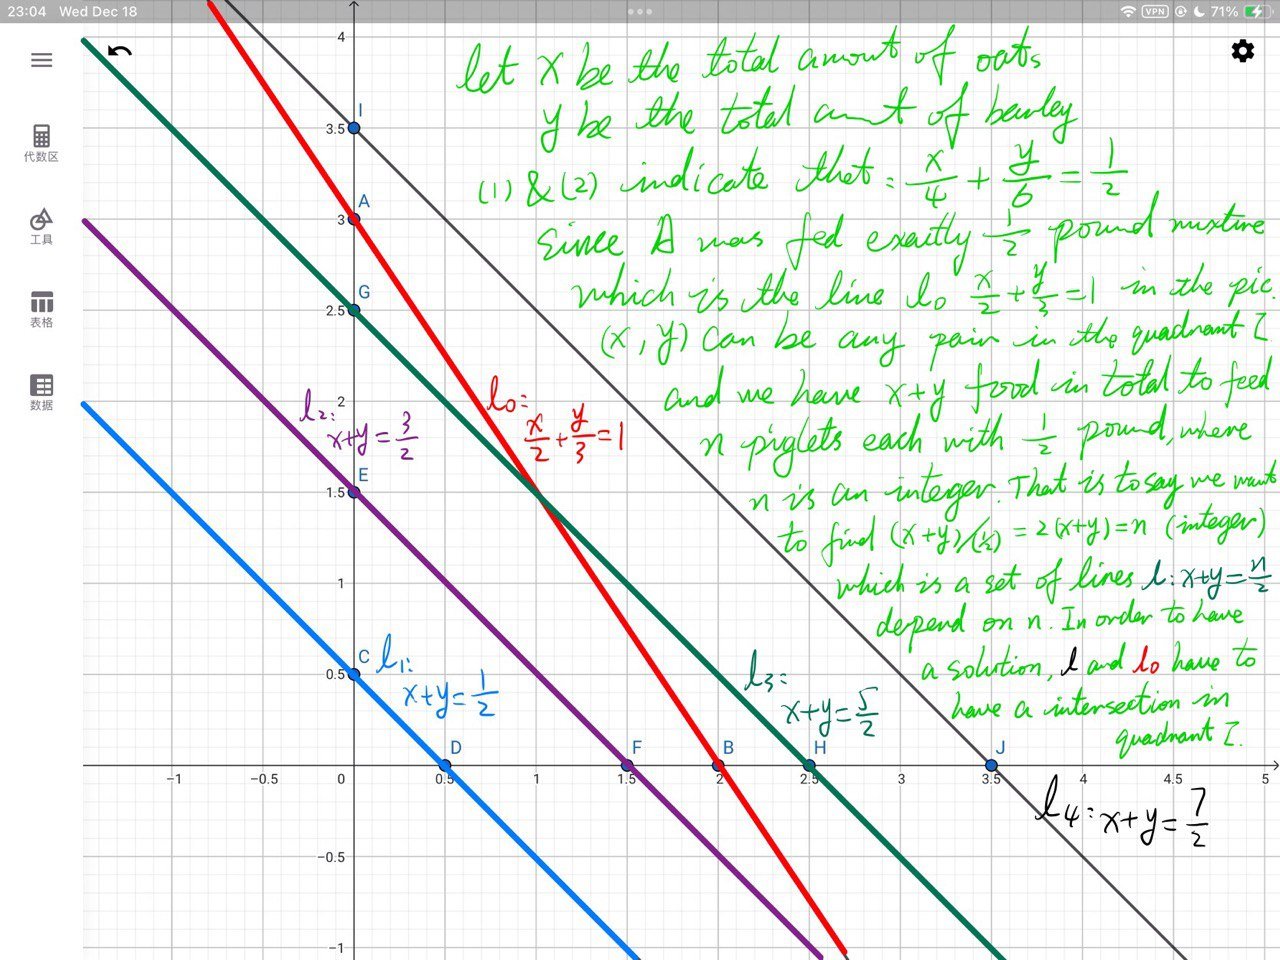 23:04 Wed Dec 18
VPN 71%
代数区
工具
表格
数据
let x be the total amount of oats
y be the total amt of barley
(1) & (2) indicate that: x/4 + y/6 = 1/2
Since A was fed exactly 1/2 pound mixture
which is the line l₀ x/2 + y/3 = 1 in the pic.
(x, y) can be any pair in the quadrant I
and we have x+y food in total to feed
n piglets each with 1/2 pound, where
n is an integer. That is to say we want
to find (x+y)/(1/2) = 2(x+y) = n (integer)
which is a set of lines l: x+y = n/2
depend on n. In order to have
a solution, l and l₀ have to
have a intersection in
quadrant I.
l₀: x/2 + y/3 = 1
l₂: x+y = 3/2
l₁: x+y = 1/2
l₃: x+y = 5/2
l₄: x+y = 7/2
I
A
G
E
C
D
F
B
H
J
4
3.5
3
2.5
2
1.5
1
0.5
−0.5
−1
−1 −0.5 0 0.5 1 1.5 2 2.5 3 3.5 4 4.5 5